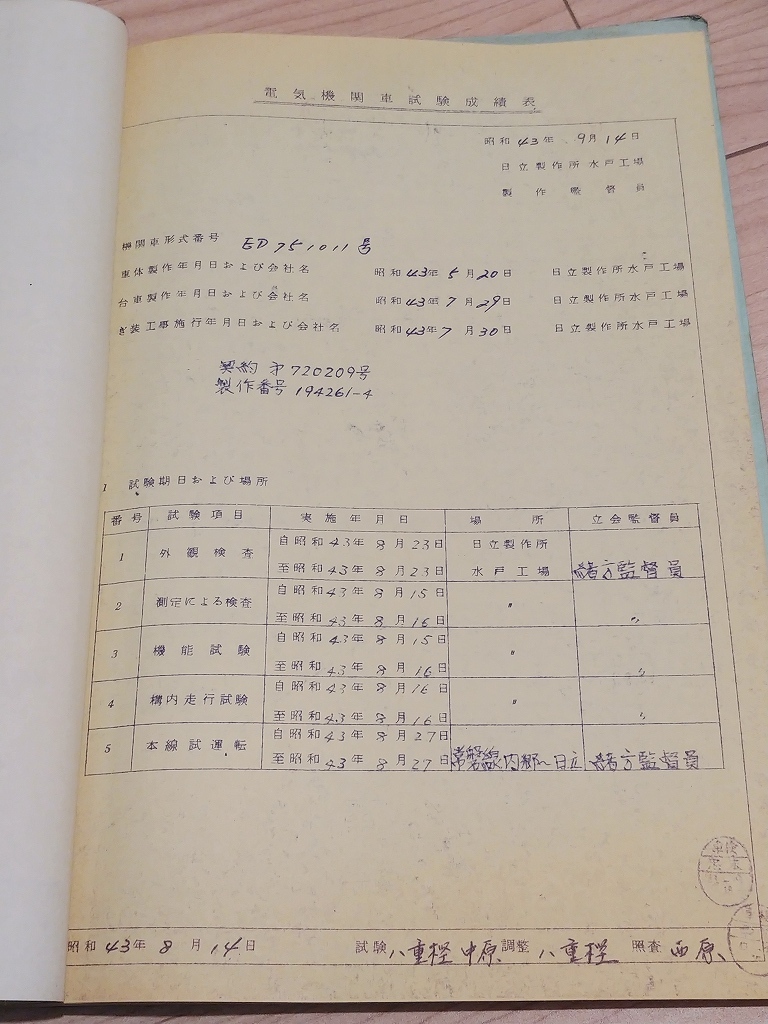 電気機関車試験成績表
昭和43年 9月14日
日立製作所水戸工場
製作監督員
機関車形式番号 ED751011号
車体製作年月日および会社名 昭和43年5月20日 日立製作所水戸工場
台車製作年月日および会社名 昭和43年7月29日 日立製作所水戸工場
ぎ装工事施行年月日および会社名 昭和43年7月30日 日立製作所水戸工場
契約 才720209号
製作番号 194261-4
I 試験期日および場所
番号 試験項目 実施年月日 場所 立会監督員
1 外観検査 自昭和43年8月23日 日立製作所
至昭和43年8月23日 水戸工場 緒方監督員
2 測定による検査 自昭和43年8月15日
至昭和43年8月16日 〃 〃
3 機能試験 自昭和43年8月15日
至昭和43年8月16日 〃 〃
4 構内走行試験 自昭和43年8月16日
至昭和43年8月16日 〃 〃
5 本線試運転 自昭和43年8月27日
至昭和43年8月27日 常磐線内郷〜日立 緒方監督員
昭和43年8月14日 試験 八重樫 中原 調整 八重樫 照査 西原